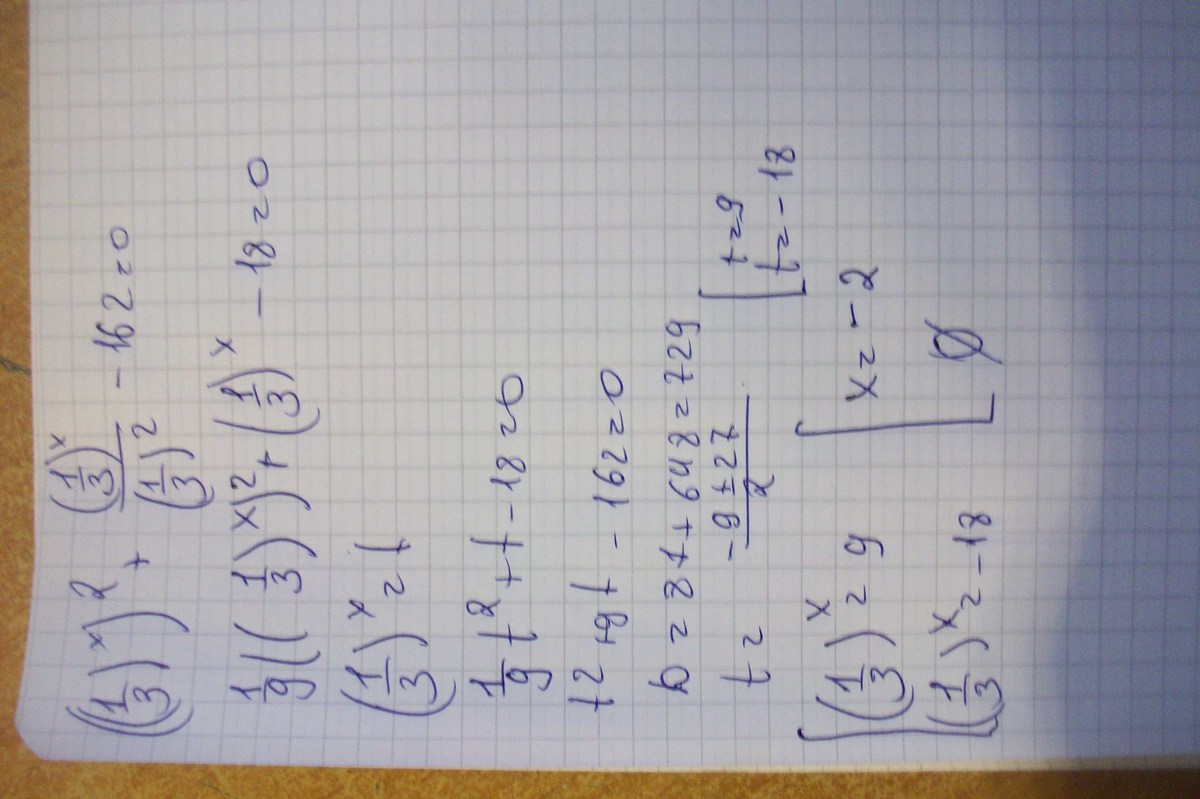 ((1/3)^x)^2 + (1/3)^x/(1/3)^2 - 162 = 0
1/9((1/3)^x)^2 + (1/3)^x - 18 = 0
(1/3)^x = t
1/9 t^2 + t - 18 = 0
t2 + 9t - 162 = 0
D = 81 + 648 = 729
t = (-9 ± 27)/2 [ t = 9
t = - 18
[ (1/3)^x = 9 [ x = - 2
(1/3)^x = -18 Ø